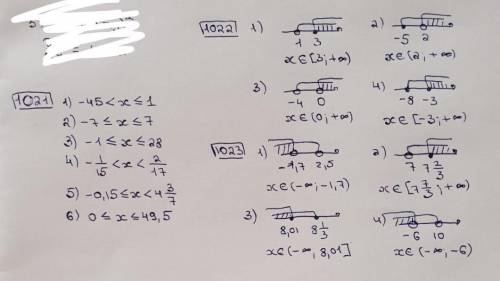 1021 1) -45 < x ≤ 1
2) -7 ≤ x ≤ 7
3) -1 ≤ x ≤ 28
4) -1/15 < x < 2/17
5) -0,15 ≤ x < 4 3/7
6) 0 ≤ x ≤ 49,5
1022 1)
1 3
x ∈ [3; +∞)
2)
-5 2
x ∈ (2; +∞)
3)
-4 0
x ∈ (0; +∞)
4)
-8 -3
x ∈ [-3; +∞)
1023 1)
-1,7 2,5
x ∈ (-∞; -1,7)
2)
7 7 2/3
x ∈ [7 2/3; +∞)
3)
8,01 8 1/3
x ∈ (-∞, 8,01]
4)
-6 10
x ∈ (-∞, -6)